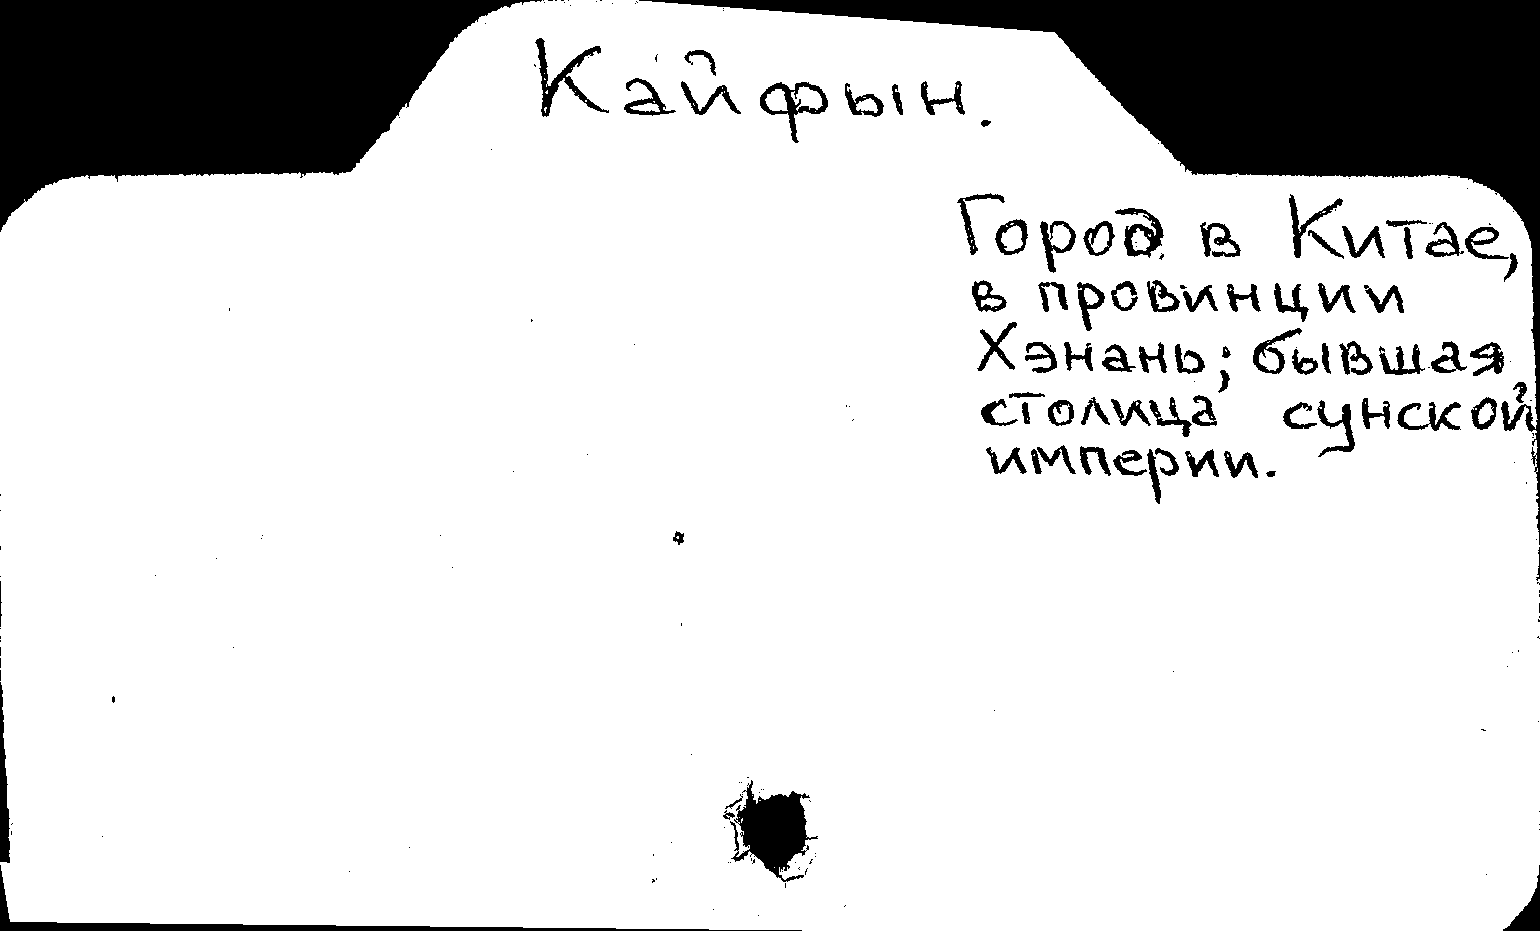 Кайфын.
Город в Китае,
в провинции
Хэнань; бывшая
столица сунской
империи.